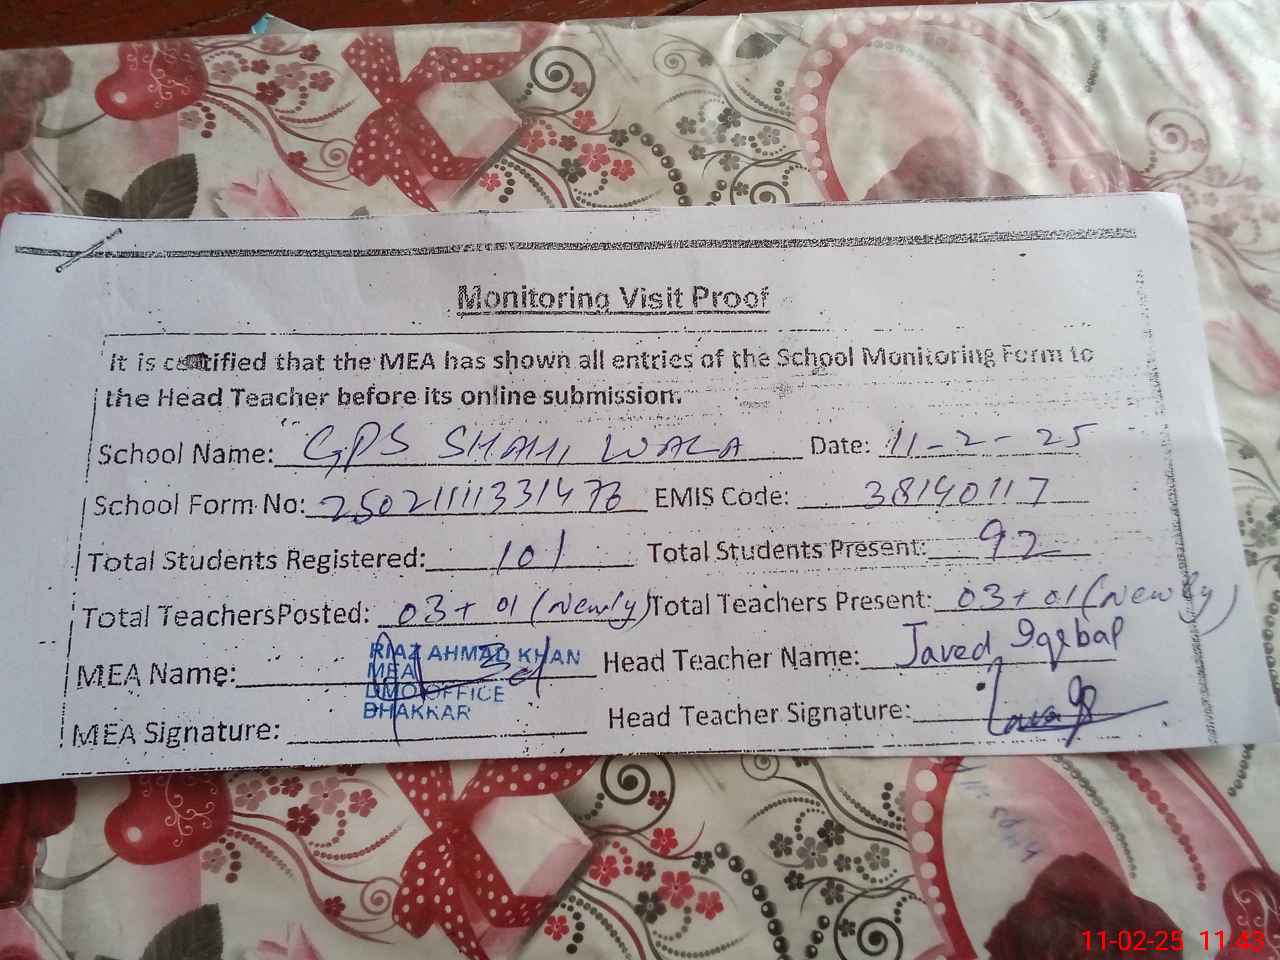 Monitoring Visit Proof
It is certified that the MEA has shown all entries of the School Monitoring Form to
the Head Teacher before its online submission.
School Name: GPS SHAHI WALA Date: 11-2-25
School Form No: EMIS Code: 38140117
Total Students Registered: 101 Total Students Present: 92
Total Teachers Posted: 03+01 (Newly) Total Teachers Present: 03+01 (Newly)
MEA Name: RIAZ AHMAD KHAN Head Teacher Name: Javed Iqbal
MEA
DMO OFFICE
BHAKKAR
MEA Signature: Head Teacher Signature:
11-02-25 11:43